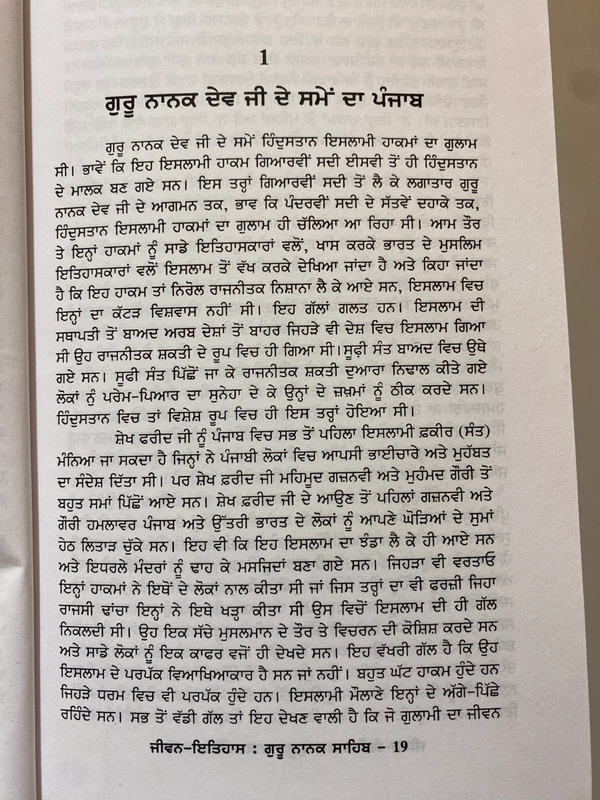 1
ਗੁਰੂ ਨਾਨਕ ਦੇਵ ਜੀ ਦੇ ਸਮੇਂ ਦਾ ਪੰਜਾਬ
ਗੁਰੂ ਨਾਨਕ ਦੇਵ ਜੀ ਦੇ ਸਮੇਂ ਹਿੰਦੁਸਤਾਨ ਇਸਲਾਮੀ ਹਾਕਮਾਂ ਦਾ ਗੁਲਾਮ
ਸੀ। ਭਾਵੇਂ ਕਿ ਇਹ ਇਸਲਾਮੀ ਹਾਕਮ ਗਿਆਰਵੀਂ ਸਦੀ ਈਸਵੀ ਤੋਂ ਹੀ ਹਿੰਦੁਸਤਾਨ
ਦੇ ਮਾਲਕ ਬਣ ਗਏ ਸਨ। ਇਸ ਤਰ੍ਹਾਂ ਗਿਆਰਵੀਂ ਸਦੀ ਤੋਂ ਲੈ ਕੇ ਲਗਾਤਾਰ ਗੁਰੂ
ਨਾਨਕ ਦੇਵ ਜੀ ਦੇ ਆਗਮਨ ਤਕ, ਭਾਵ ਕਿ ਪੰਦਰਵੀਂ ਸਦੀ ਦੇ ਸੱਤਵੇਂ ਦਹਾਕੇ ਤਕ,
ਹਿੰਦੁਸਤਾਨ ਇਸਲਾਮੀ ਹਾਕਮਾਂ ਦਾ ਗੁਲਾਮ ਹੀ ਚੱਲਿਆ ਆ ਰਿਹਾ ਸੀ। ਆਮ ਤੌਰ
ਤੇ ਇਨ੍ਹਾਂ ਹਾਕਮਾਂ ਨੂੰ ਸਾਡੇ ਇਤਿਹਾਸਕਾਰਾਂ ਵਲੋਂ, ਖਾਸ ਕਰਕੇ ਭਾਰਤ ਦੇ ਮੁਸਲਿਮ
ਇਤਿਹਾਸਕਾਰਾਂ ਵਲੋਂ ਇਸਲਾਮ ਤੋਂ ਵੱਖ ਕਰਕੇ ਦੇਖਿਆ ਜਾਂਦਾ ਹੈ ਅਤੇ ਕਿਹਾ ਜਾਂਦਾ
ਹੈ ਕਿ ਇਹ ਹਾਕਮ ਤਾਂ ਨਿਰੋਲ ਰਾਜਨੀਤਕ ਨਿਸ਼ਾਨਾ ਲੈ ਕੇ ਆਏ ਸਨ, ਇਸਲਾਮ ਵਿਚ
ਇਨ੍ਹਾਂ ਦਾ ਕੱਟੜ ਵਿਸ਼ਵਾਸ ਨਹੀਂ ਸੀ। ਇਹ ਗੱਲਾਂ ਗਲਤ ਹਨ। ਇਸਲਾਮ ਦੀ
ਸਥਾਪਤੀ ਤੋਂ ਬਾਅਦ ਅਰਬ ਦੇਸ਼ਾਂ ਤੋਂ ਬਾਹਰ ਜਿਹੜੇ ਵੀ ਦੇਸ਼ ਵਿਚ ਇਸਲਾਮ ਗਿਆ
ਸੀ ਉਹ ਰਾਜਨੀਤਕ ਸ਼ਕਤੀ ਦੇ ਰੂਪ ਵਿਚ ਹੀ ਗਿਆ ਸੀ।ਸੂਫ਼ੀ ਸੰਤ ਬਾਅਦ ਵਿਚ ਉਥੇ
ਗਏ ਸਨ। ਸੂਫੀ ਸੰਤ ਪਿੱਛੋਂ ਜਾ ਕੇ ਰਾਜਨੀਤਕ ਸ਼ਕਤੀ ਦੁਆਰਾ ਨਿਢਾਲ ਕੀਤੇ ਗਏ
ਲੋਕਾਂ ਨੂੰ ਪਰੇਮ-ਪਿਆਰ ਦਾ ਸੁਨੇਹਾ ਦੇ ਕੇ ਉਨ੍ਹਾਂ ਦੇ ਜ਼ਖ਼ਮਾਂ ਨੂੰ ਠੀਕ ਕਰਦੇ ਸਨ।
ਹਿੰਦੁਸਤਾਨ ਵਿਚ ਤਾਂ ਵਿਸ਼ੇਸ਼ ਰੂਪ ਵਿਚ ਹੀ ਇਸ ਤਰ੍ਹਾਂ ਹੋਇਆ ਸੀ।
ਸ਼ੇਖ ਫਰੀਦ ਜੀ ਨੂੰ ਪੰਜਾਬ ਵਿਚ ਸਭ ਤੋਂ ਪਹਿਲਾ ਇਸਲਾਮੀ ਫ਼ਕੀਰ (ਸੰਤ)
ਮੰਨਿਆ ਜਾ ਸਕਦਾ ਹੈ ਜਿਨ੍ਹਾਂ ਨੇ ਪੰਜਾਬੀ ਲੋਕਾਂ ਵਿਚ ਆਪਸੀ ਭਾਈਚਾਰੇ ਅਤੇ ਮੁਹੱਬਤ
ਦਾ ਸੰਦੇਸ਼ ਦਿੱਤਾ ਸੀ। ਪਰ ਸ਼ੇਖ ਫ਼ਰੀਦ ਜੀ ਮਹਿਮੂਦ ਗਜ਼ਨਵੀ ਅਤੇ ਮੁਹੰਮਦ ਗੌਰੀ ਤੋਂ
ਬਹੁਤ ਸਮਾਂ ਪਿੱਛੋਂ ਆਏ ਸਨ। ਸ਼ੇਖ ਫ਼ਰੀਦ ਜੀ ਦੇ ਆਉਣ ਤੋਂ ਪਹਿਲਾਂ ਗਜ਼ਨਵੀ ਅਤੇ
ਗੌਰੀ ਹਮਲਾਵਰ ਪੰਜਾਬ ਅਤੇ ਉੱਤਰੀ ਭਾਰਤ ਦੇ ਲੋਕਾਂ ਨੂੰ ਆਪਣੇ ਘੋੜਿਆਂ ਦੇ ਸੁਮਾਂ
ਹੇਠ ਲਿਤਾੜ ਚੁੱਕੇ ਸਨ। ਇਹ ਵੀ ਕਿ ਇਹ ਇਸਲਾਮ ਦਾ ਝੰਡਾ ਲੈ ਕੇ ਹੀ ਆਏ ਸਨ
ਅਤੇ ਇਧਰਲੇ ਮੰਦਰਾਂ ਨੂੰ ਢਾਹ ਕੇ ਮਸਜਿਦਾਂ ਬਣਾ ਗਏ ਸਨ। ਜਿਹੜਾ ਵੀ ਵਰਤਾਓ
ਇਨ੍ਹਾਂ ਹਾਕਮਾਂ ਨੇ ਇਥੋਂ ਦੇ ਲੋਕਾਂ ਨਾਲ ਕੀਤਾ ਸੀ ਜਾਂ ਜਿਸ ਤਰ੍ਹਾਂ ਦਾ ਵੀ ਫਰਜ਼ੀ ਜਿਹਾ
ਰਾਜਸੀ ਢਾਂਚਾ ਇਨ੍ਹਾਂ ਨੇ ਇਥੇ ਖੜ੍ਹਾ ਕੀਤਾ ਸੀ ਉਸ ਵਿਚੋਂ ਇਸਲਾਮ ਦੀ ਹੀ ਗੱਲ
ਨਿਕਲਦੀ ਸੀ। ਉਹ ਇਕ ਸੱਚੇ ਮੁਸਲਮਾਨ ਦੇ ਤੌਰ ਤੇ ਵਿਚਰਨ ਦੀ ਕੋਸ਼ਿਸ਼ ਕਰਦੇ ਸਨ
ਅਤੇ ਸਾਡੇ ਲੋਕਾਂ ਨੂੰ ਇਕ ਕਾਫਰ ਵਜੋਂ ਹੀ ਦੇਖਦੇ ਸਨ। ਇਹ ਵੱਖਰੀ ਗੱਲ ਹੈ ਕਿ ਉਹ
ਇਸਲਾਮ ਦੇ ਪਰਪੱਕ ਵਿਆਖਿਆਕਾਰ ਹੈ ਸਨ ਜਾਂ ਨਹੀਂ। ਬਹੁਤ ਘੱਟ ਹਾਕਮ ਹੁੰਦੇ ਹਨ
ਜਿਹੜੇ ਧਰਮ ਵਿਚ ਵੀ ਪਰਪੱਕ ਹੁੰਦੇ ਹਨ। ਇਸਲਾਮੀ ਮੌਲਾਣੇ ਇਨ੍ਹਾਂ ਦੇ ਅੱਗੇ-ਪਿੱਛੇ
ਰਹਿੰਦੇ ਸਨ। ਸਭ ਤੋਂ ਵੱਡੀ ਗੱਲ ਤਾਂ ਇਹ ਦੇਖਣ ਵਾਲੀ ਹੈ ਕਿ ਜੋ ਗੁਲਾਮੀ ਦਾ ਜੀਵਨ
ਜੀਵਨ-ਇਤਿਹਾਸ : ਗੁਰੂ ਨਾਨਕ ਸਾਹਿਬ - 19